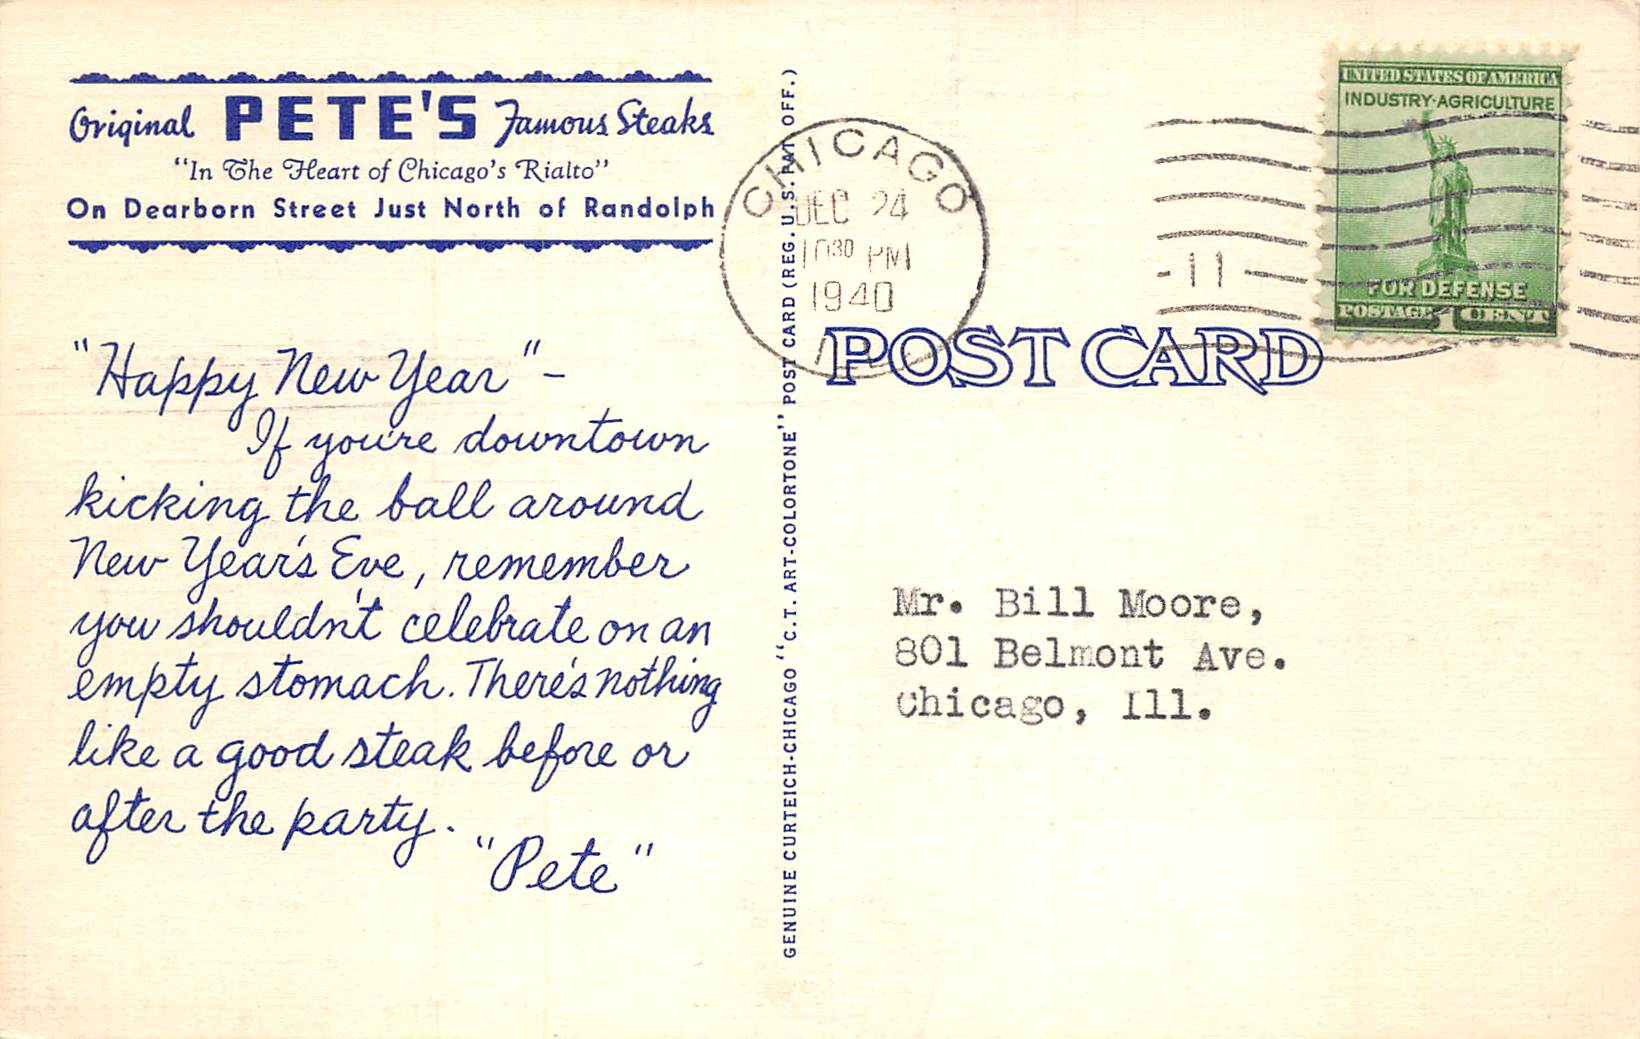 Original PETE'S Famous Steaks
"In The Heart of Chicago's Rialto"
On Dearborn Street Just North of Randolph
"Happy New Year" -
If you're downtown
kicking the ball around
New Year's Eve, remember
you shouldn't celebrate on an
empty stomach. There's nothing
like a good steak before or
after the party.
"Pete"
GENUINE CURTEICH-CHICAGO "C.T. ART-COLORTONE" POST CARD (REG. U.S. PAT. OFF.)
CHICAGO
DEC 24
10 30 PM
1940
- 11 -
UNITED STATES OF AMERICA
INDUSTRY·AGRICULTURE
FOR DEFENSE
POSTAGE 1 CENT
POST CARD
Mr. Bill Moore,
801 Belmont Ave.
Chicago, Ill.